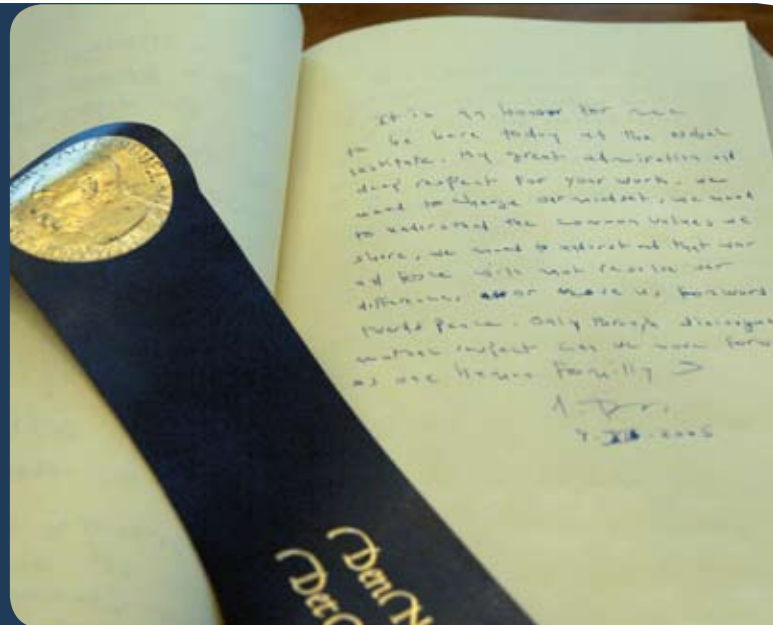 It is an honour for me
to be here today at the Nobel
Institute. My great admiration and
deep respect for your work. we
need to change our mindset, we need
to understand the common values we
share, we need to understand that war
and force will not resolve our
differences, or move us forward
towards peace. Only through dialogue
mutual respect can we move forw
as one Human Family
2005
Den N
Det